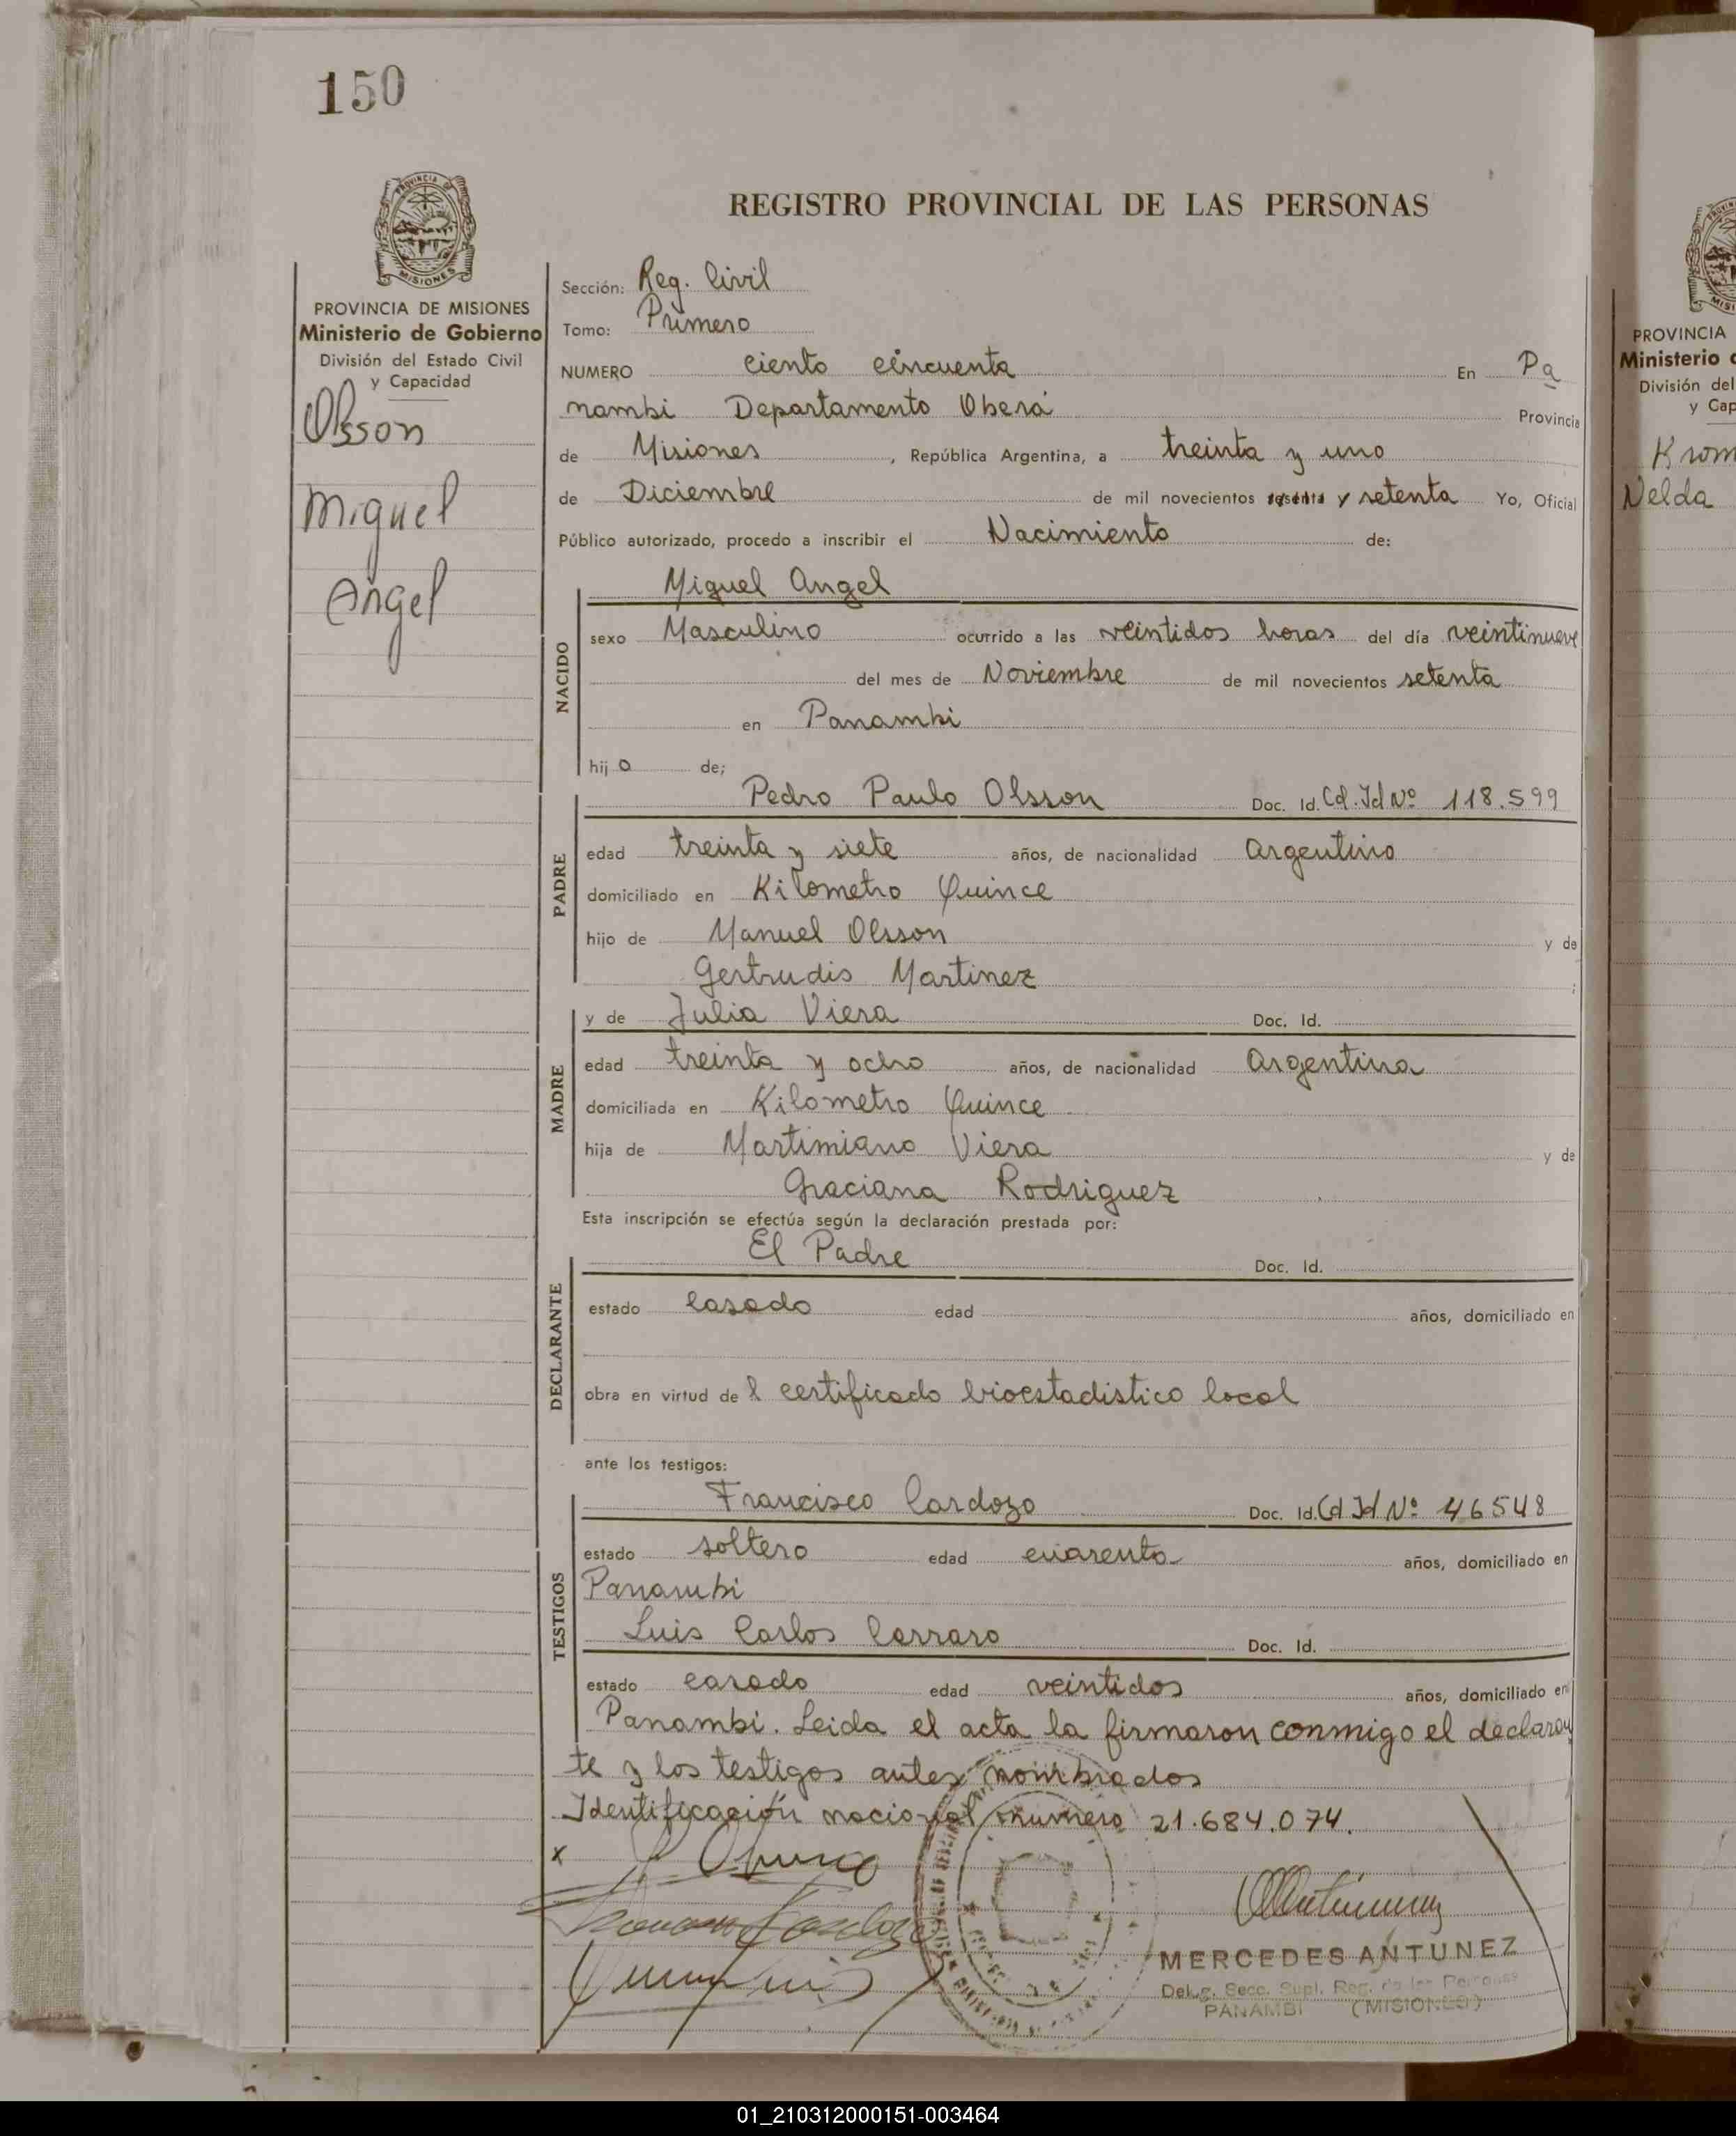 150
REGISTRO PROVINCIAL DE LAS PERSONAS
PROVINCIA DE MISIONES
Ministerio de Gobierno
División del Estado Civil
y Capacidad
Olsson
Miguel
Angel
Sección: Reg. Civil
Tomo: Primero
NUMERO ciento cincuenta En Pa
nambi Departamento Oberá Provincia
de Misiones, República Argentina, a treinta y uno
de Diciembre de mil novecientos sesenta y setenta Yo, Oficial
Público autorizado, procedo a inscribir el Nacimiento de:
NACIDO
Miguel Angel
sexo Masculino ocurrido a las veintidos horas del día veintinueve
del mes de Noviembre de mil novecientos setenta
en Panambi
hijo de;
PADRE
Pedro Paulo Olsson Doc. Id. Cd. Id Nº 118.599
edad treinta y siete años, de nacionalidad Argentino
domiciliado en Kilometro Quince
hijo de Manuel Olsson y de
Gertrudis Martinez ;
MADRE
y de Julia Viera Doc. Id.
edad treinta y ocho años, de nacionalidad Argentina
domiciliada en Kilometro Quince
hija de Martimiano Viera y de
Graciana Rodriguez
Esta inscripción se efectúa según la declaración prestada por:
DECLARANTE
El Padre Doc. Id.
estado Casado edad años, domiciliado en
obra en virtud del certificado bioestadistico local
ante los testigos:
TESTIGOS
Francisco Cardozo Doc. Id. Cd Id Nº 46548
estado soltero edad cuarenta años, domiciliado en
Panambi
Luis Carlos Carraro Doc. Id.
estado casado edad veintidos años, domiciliado en
Panambi. Leida el acta la firmaron conmigo el declaran
te y los testigos antes nombrados
Identificación nacional numero 21.684.074.
x
MERCEDES ANTUNEZ
Deleg. Secc. Supl. Reg. de las Personas
PANAMBI (MISIONES)
PROVINCIA
Ministerio
División del
y Cap
Krom
Nelda
01_210312000151-003464